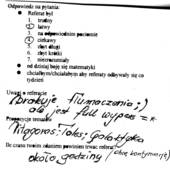 Odpowiedz na pytania:
Referat był
1. trudny
2. łatwy
3. na odpowiednim poziomie
4. ciekawy
5. zbyt długi
6. zbyt krótki
7. niezrozumiały
od dzisiaj boję się matematyki
chciałbym/chciałabym aby referaty odbywały się co tydzień
Uwagi o referacie
brakuje tłumaczenia ;)
ale jest full wypas =
Propozycje tematów
Pitagoras: Tales; Galaktyka
Ile czasu twoim zdaniem powinien trwać referat
około godziny (chcę kontynuację)